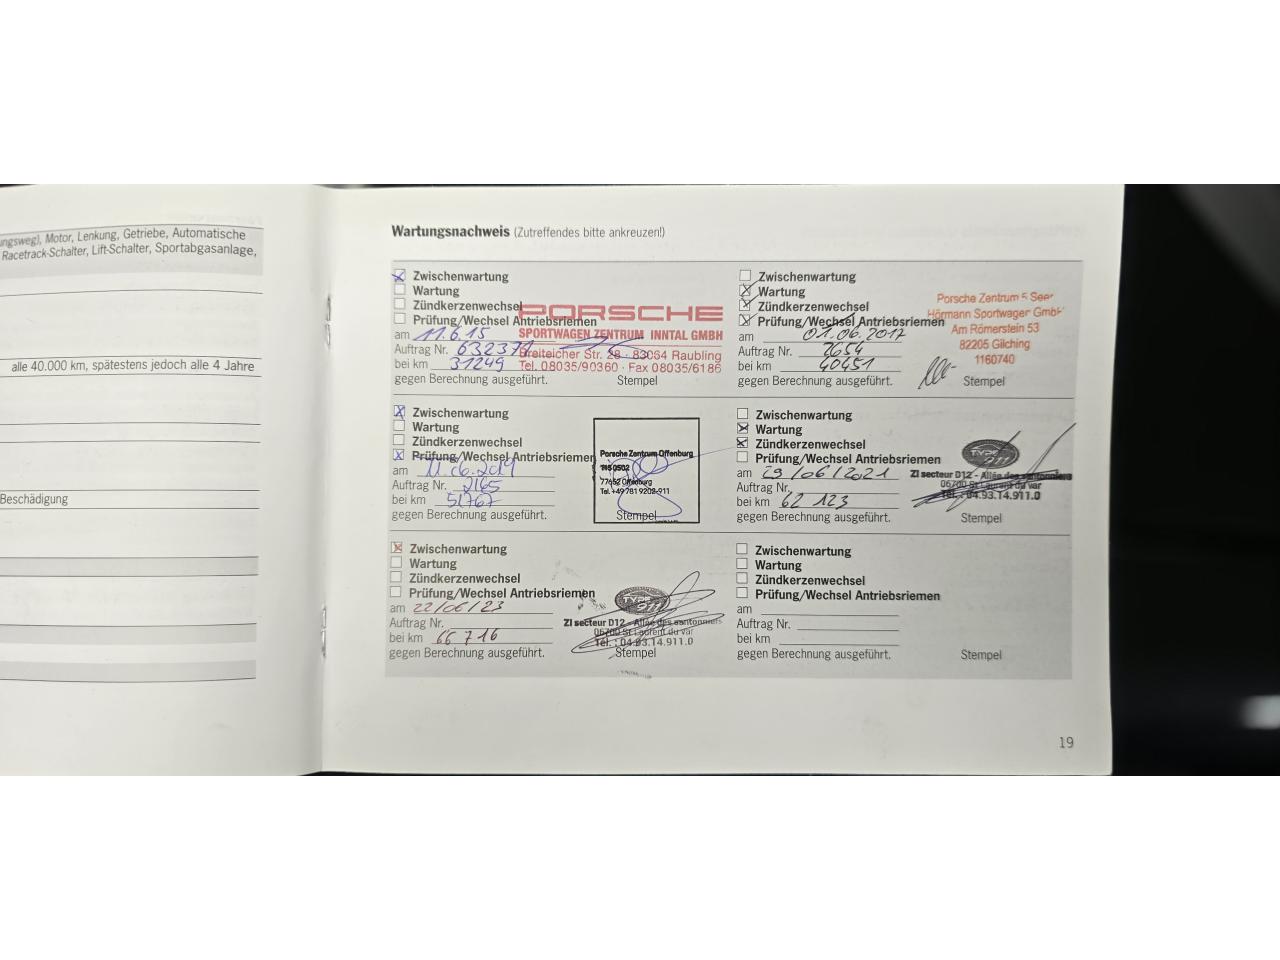 ungsweg), Motor, Lenkung, Getriebe, Automatische
Racetrack-Schalter, Lift-Schalter, Sportabgasanlage,
alle 40.000 km, spätestens jedoch alle 4 Jahre
Beschädigung
Wartungsnachweis (Zutreffendes bitte ankreuzen!)
Zwischenwartung
Wartung
Zündkerzenwechsel
Prüfung/Wechsel Antriebsriemen
am 11.6.15
Auftrag Nr. 632371
bei km 31249
gegen Berechnung ausgeführt.
Stempel
PORSCHE
SPORTWAGEN ZENTRUM INNTAL GMBH
Breiteicher Str. 28 · 83064 Raubling
Tel. 08035/90360 · Fax 08035/6186
Zwischenwartung
Wartung
Zündkerzenwechsel
Prüfung/Wechsel Antriebsriemen
am 01.06.2017
Auftrag Nr. 2654
bei km 40451
gegen Berechnung ausgeführt.
Stempel
Porsche Zentrum 5 Seen
Hörmann Sportwagen GmbH
Am Römerstein 53
82205 Gilching
1160740
Zwischenwartung
Wartung
Zündkerzenwechsel
Prüfung/Wechsel Antriebsriemen
am 11.06.2019
Auftrag Nr. 2165
bei km 51767
gegen Berechnung ausgeführt.
Porsche Zentrum Offenburg
77652 Offenburg
Tel. +49 781 9202-911
Stempel
Zwischenwartung
Wartung
Zündkerzenwechsel
Prüfung/Wechsel Antriebsriemen
am 29/06/2021
Auftrag Nr.
bei km 62 123
gegen Berechnung ausgeführt.
TYPE 911
ZI secteur D12 - Allée des santonniers
06700 St Laurent du var
Tél. : 04.93.14.911.0
Stempel
Zwischenwartung
Wartung
Zündkerzenwechsel
Prüfung/Wechsel Antriebsriemen
am 22/06/23
Auftrag Nr.
bei km 66 716
gegen Berechnung ausgeführt.
TYPE 911
ZI secteur D12 - Allée des santonniers
06700 St Laurent du var
Tél. : 04.93.14.911.0
Stempel
Zwischenwartung
Wartung
Zündkerzenwechsel
Prüfung/Wechsel Antriebsriemen
am
Auftrag Nr.
bei km
gegen Berechnung ausgeführt.
Stempel
19